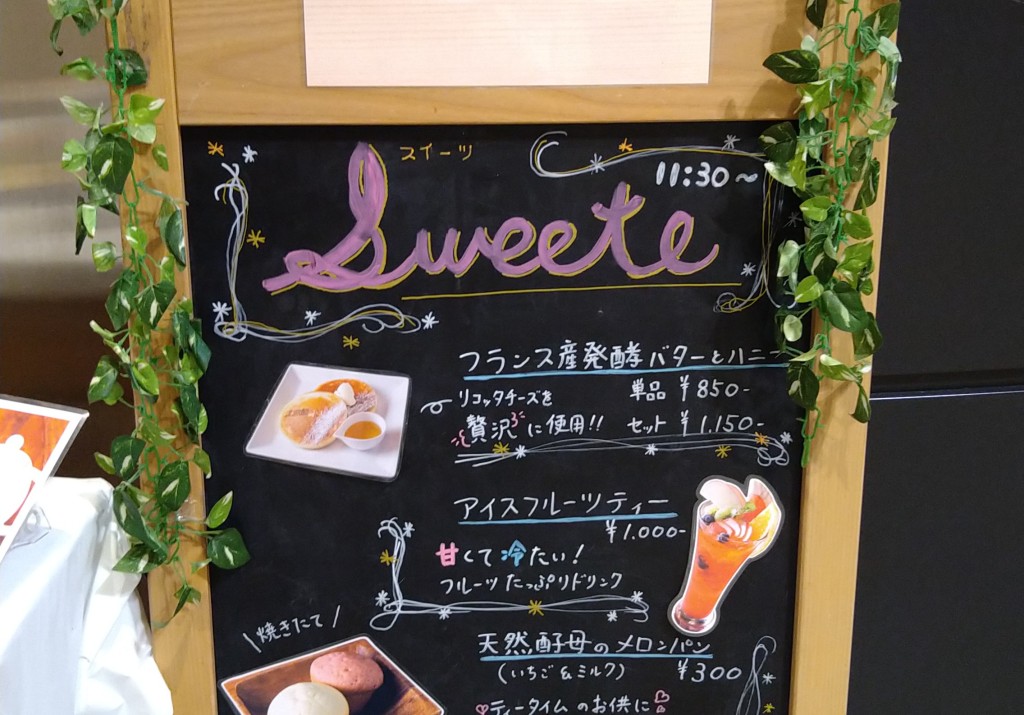 スイーツ
11:30~
Sweete
フランス産発酵バターとハニー
リコッタチーズを
単品 ¥850-
贅沢に使用!! セット ¥1.150-
アイスフルーツティー
¥1.000-
甘くて冷たい!
フルーツたっぷりドリンク
\焼きたて/
天然酵母のメロンパン
(いちご&ミルク) ¥300
ティータイムのお供に